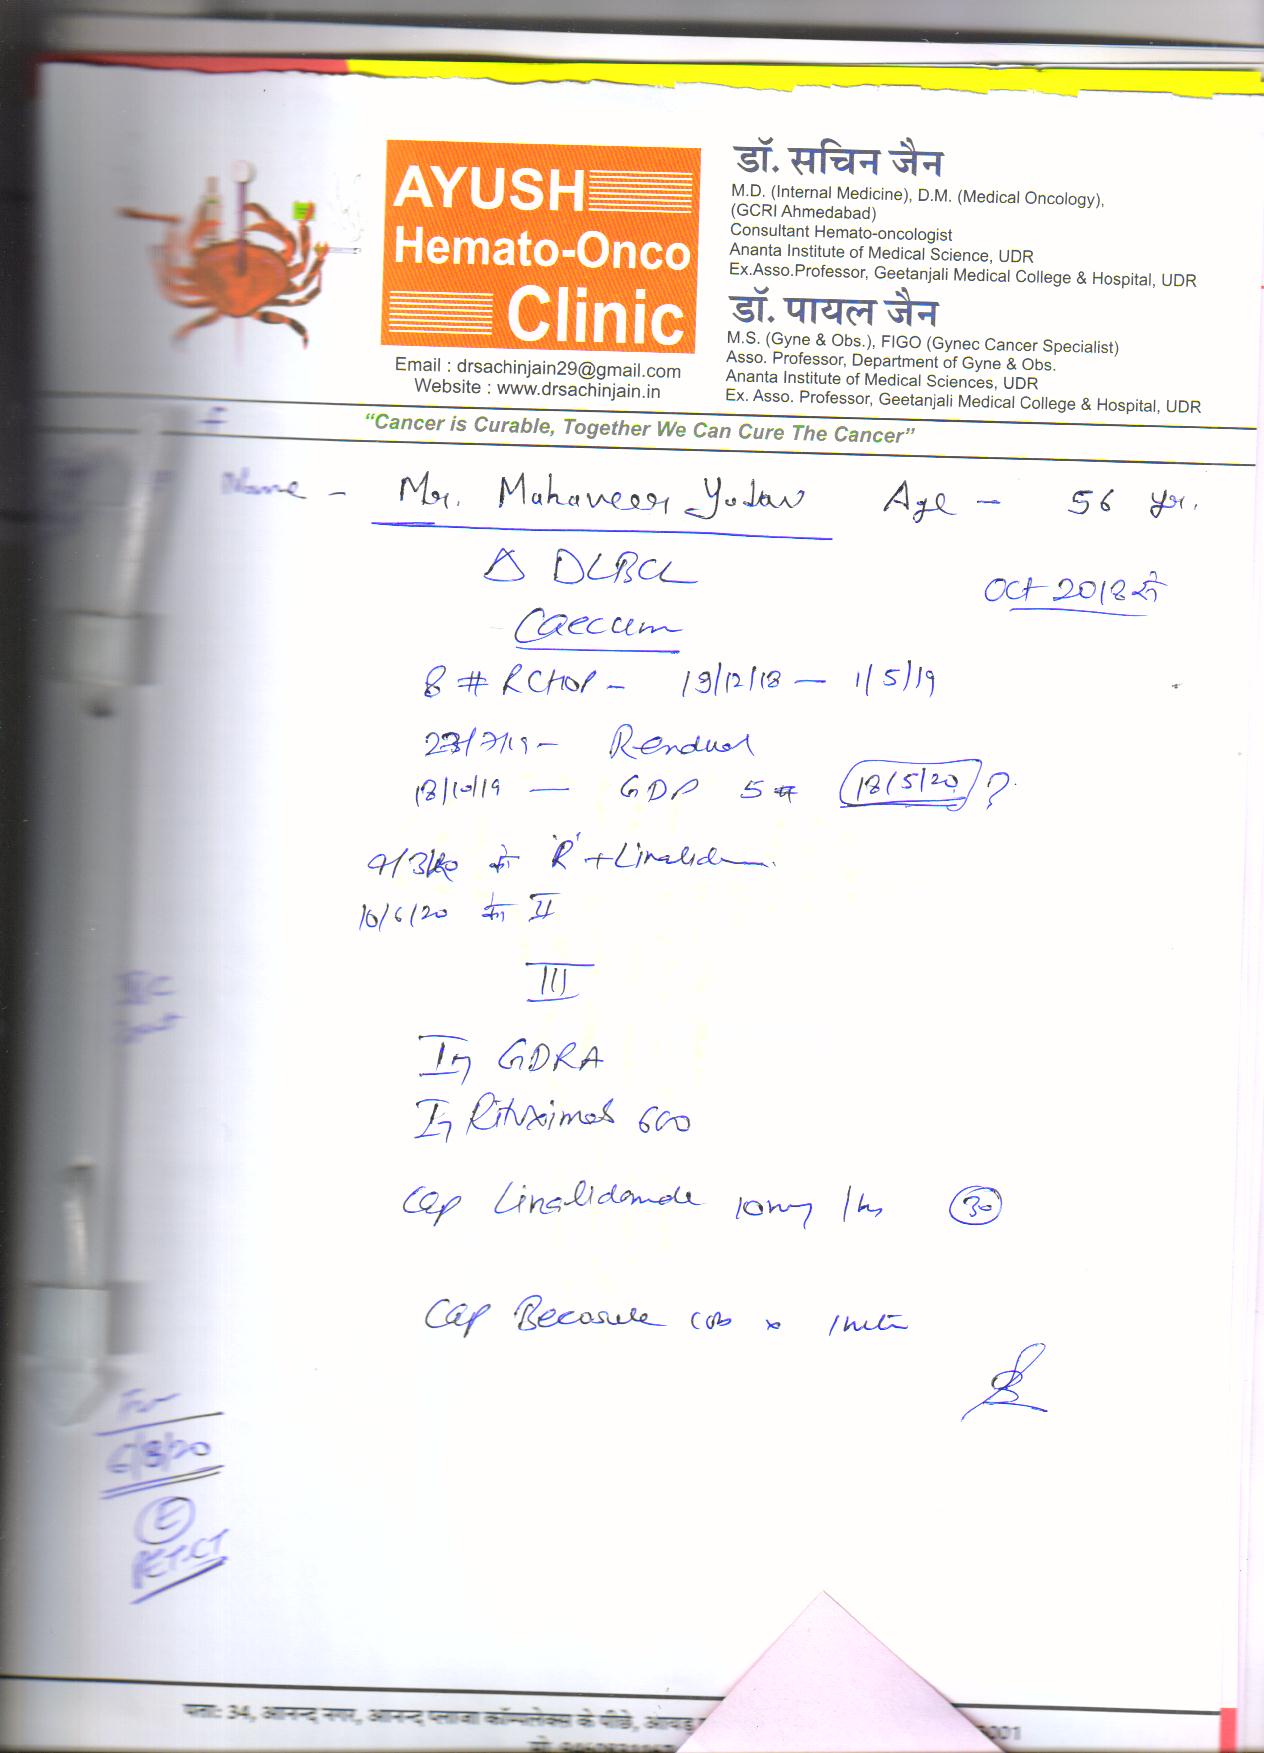 AYUSH
Hemato-Onco
Clinic
Email : drsachinjain29@gmail.com
Website : www.drsachinjain.in
डॉ. सचिन जैन
M.D. (Internal Medicine), D.M. (Medical Oncology),
(GCRI Ahmedabad)
Consultant Hemato-oncologist
Ananta Institute of Medical Science, UDR
Ex.Asso.Professor, Geetanjali Medical College & Hospital, UDR
डॉ. पायल जैन
M.S. (Gyne & Obs.), FIGO (Gynec Cancer Specialist)
Asso. Professor, Department of Gyne & Obs.
Ananta Institute of Medical Sciences, UDR
Ex. Asso. Professor, Geetanjali Medical College & Hospital, UDR
“Cancer is Curable, Together We Can Cure The Cancer”
Name - Mr. Mahaveer Yadav Age - 56 yr.
Δ DLBCL
Oct 2018 से
Caecum
8 # RCHOP - 19/12/18 - 1/5/19
23/7/19 - Residual
18/10/19 - GDP 5 # 18/5/20 ?
9/3/20 को 'R' +
10/6/20 का II
III
Inj GDRA
Inj Rituximab 600
Cap Linalidamide 10mg 1 hs 30
Cap Becosule
6/8/20
E
PET-CT
पता: 34, आनन्द नगर, आनन्द प्लाजा कॉम्पलेक्स के पीछे, आयड़